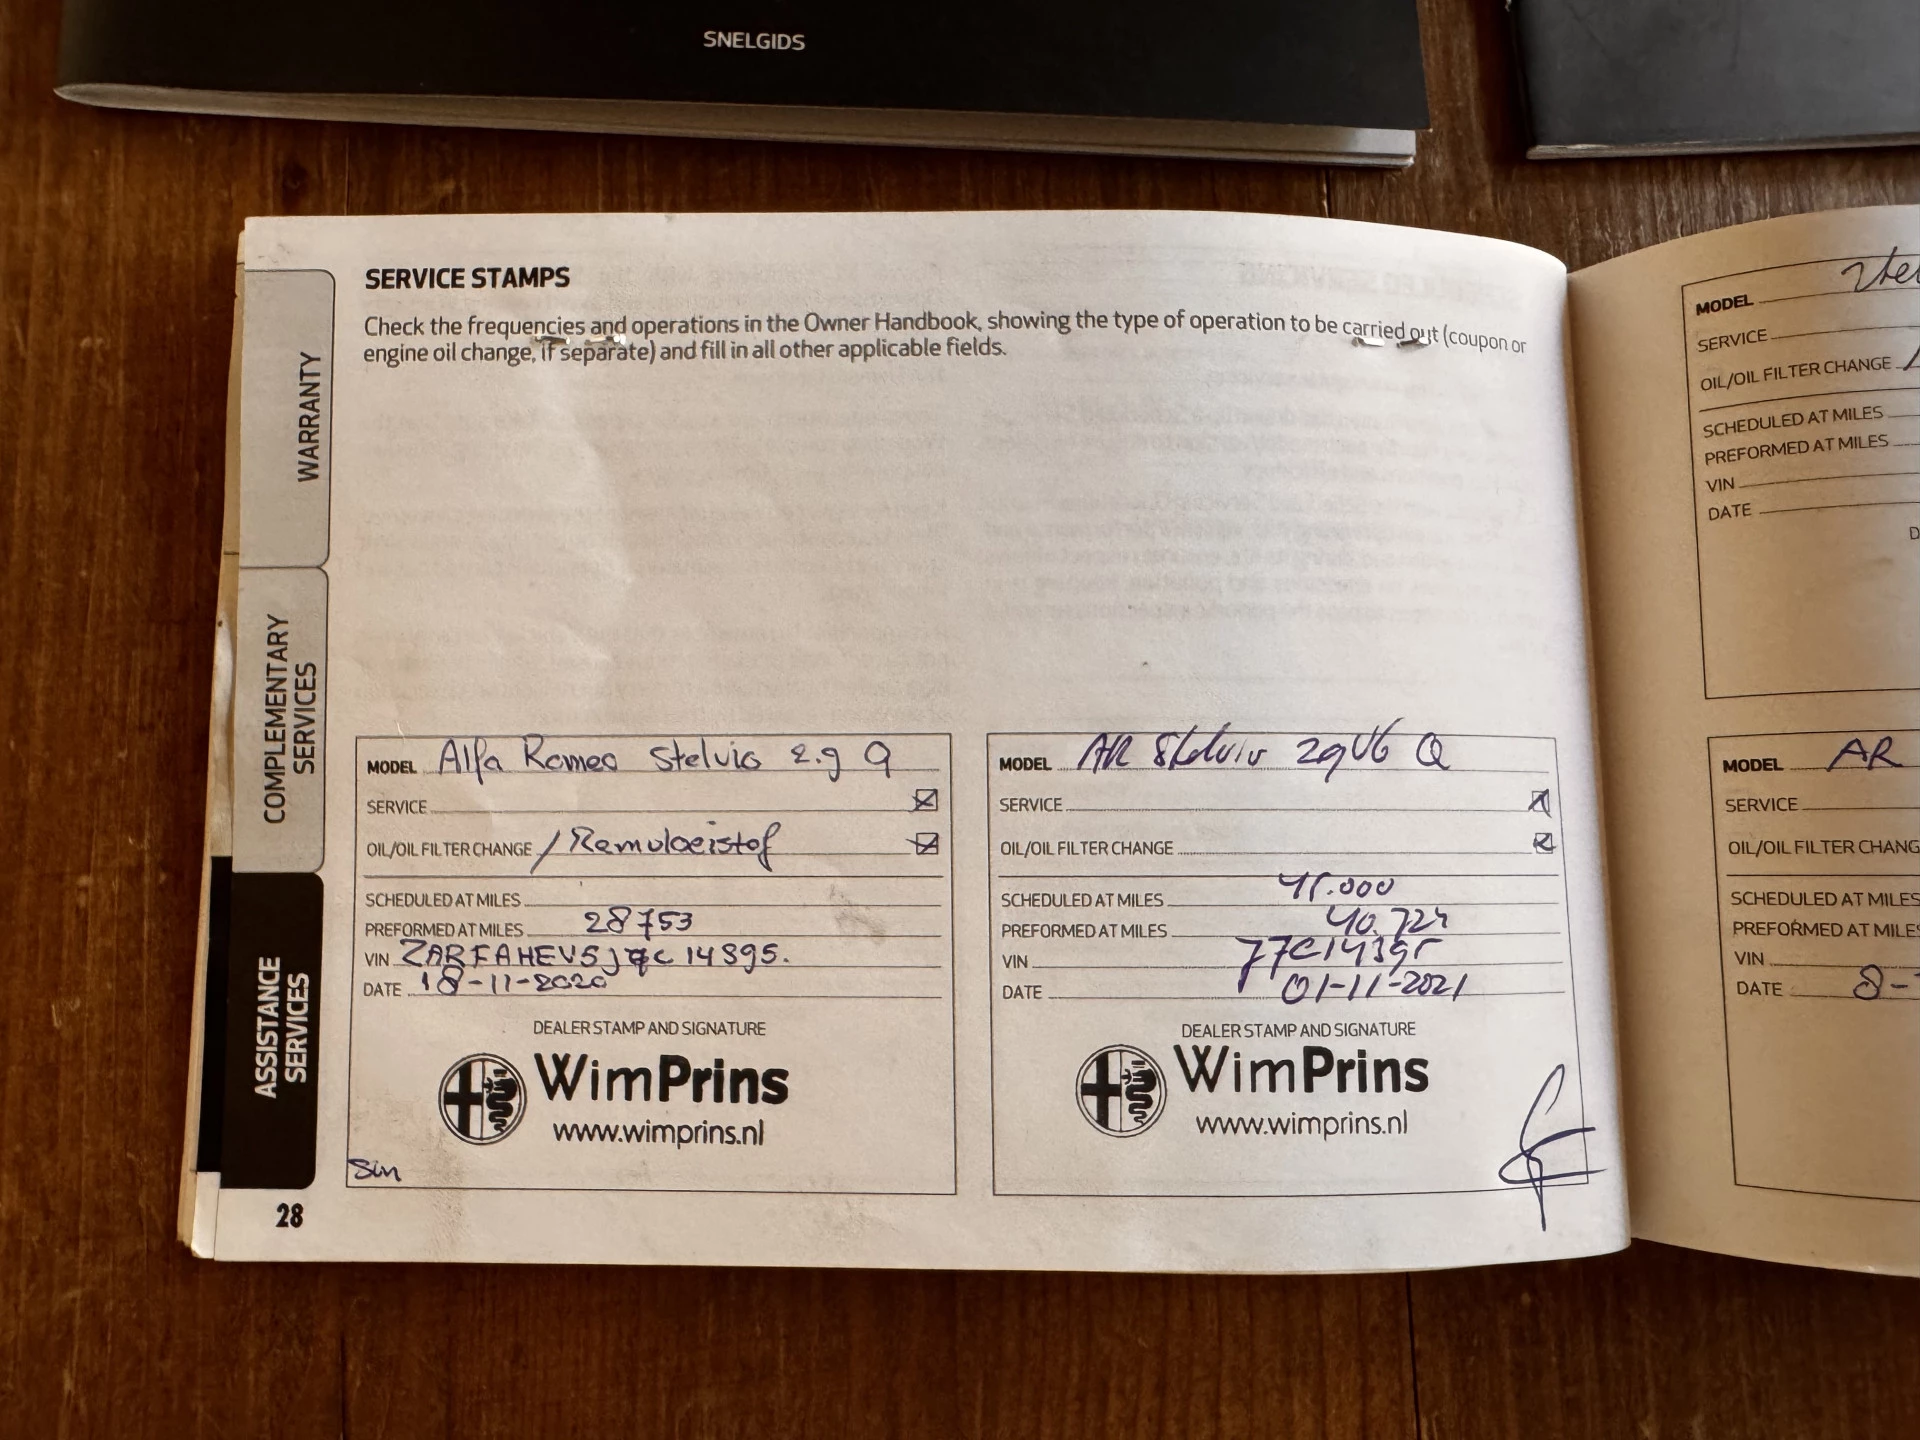 SNELGIDS
SERVICE STAMPS
Check the frequencies and operations in the Owner Handbook, showing the type of operation to be carried out (coupon or
engine oil change, if separate) and fill in all other applicable fields.
WARRANTY
COMPLEMENTARY
SERVICES
ASSISTANCE
SERVICES
MODEL Alfa Romeo Stelvio 2.9 Q
SERVICE
OIL/OIL FILTER CHANGE / Remvloeistof
SCHEDULED AT MILES
PREFORMED AT MILES 28753
VIN
DATE 18-11-2020
DEALER STAMP AND SIGNATURE
WimPrins
www.wimprins.nl
28
MODEL AR Stelvio 2.9 V6 Q
SERVICE
OIL/OIL FILTER CHANGE
SCHEDULED AT MILES 45.000
PREFORMED AT MILES 40.724
VIN
DATE 01-11-2021
DEALER STAMP AND SIGNATURE
WimPrins
www.wimprins.nl
MODEL Stel
SERVICE
OIL/OIL FILTER CHANGE
SCHEDULED AT MILES
PREFORMED AT MILES
VIN
DATE
D
MODEL AR
SERVICE
OIL/OIL FILTER CHANG
SCHEDULED AT MILES
PREFORMED AT MILES
VIN
DATE 8-